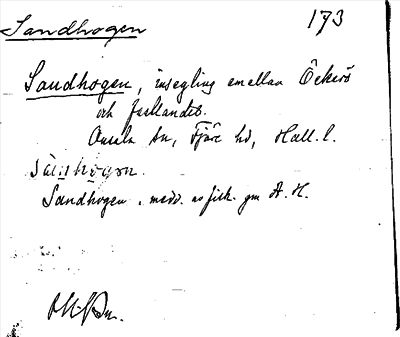 Sandhogen 173
Sandhogen, insegling emellan Öckerö
och fastlandet.
Onsala sn, Fjäre hd, Hall. l.
Sandhogen, medd. av fisk. gm A. H.